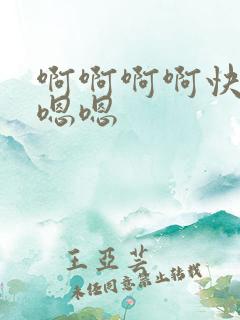 啊啊啊啊快
嗯嗯
王亞芸
未经同意禁止转载